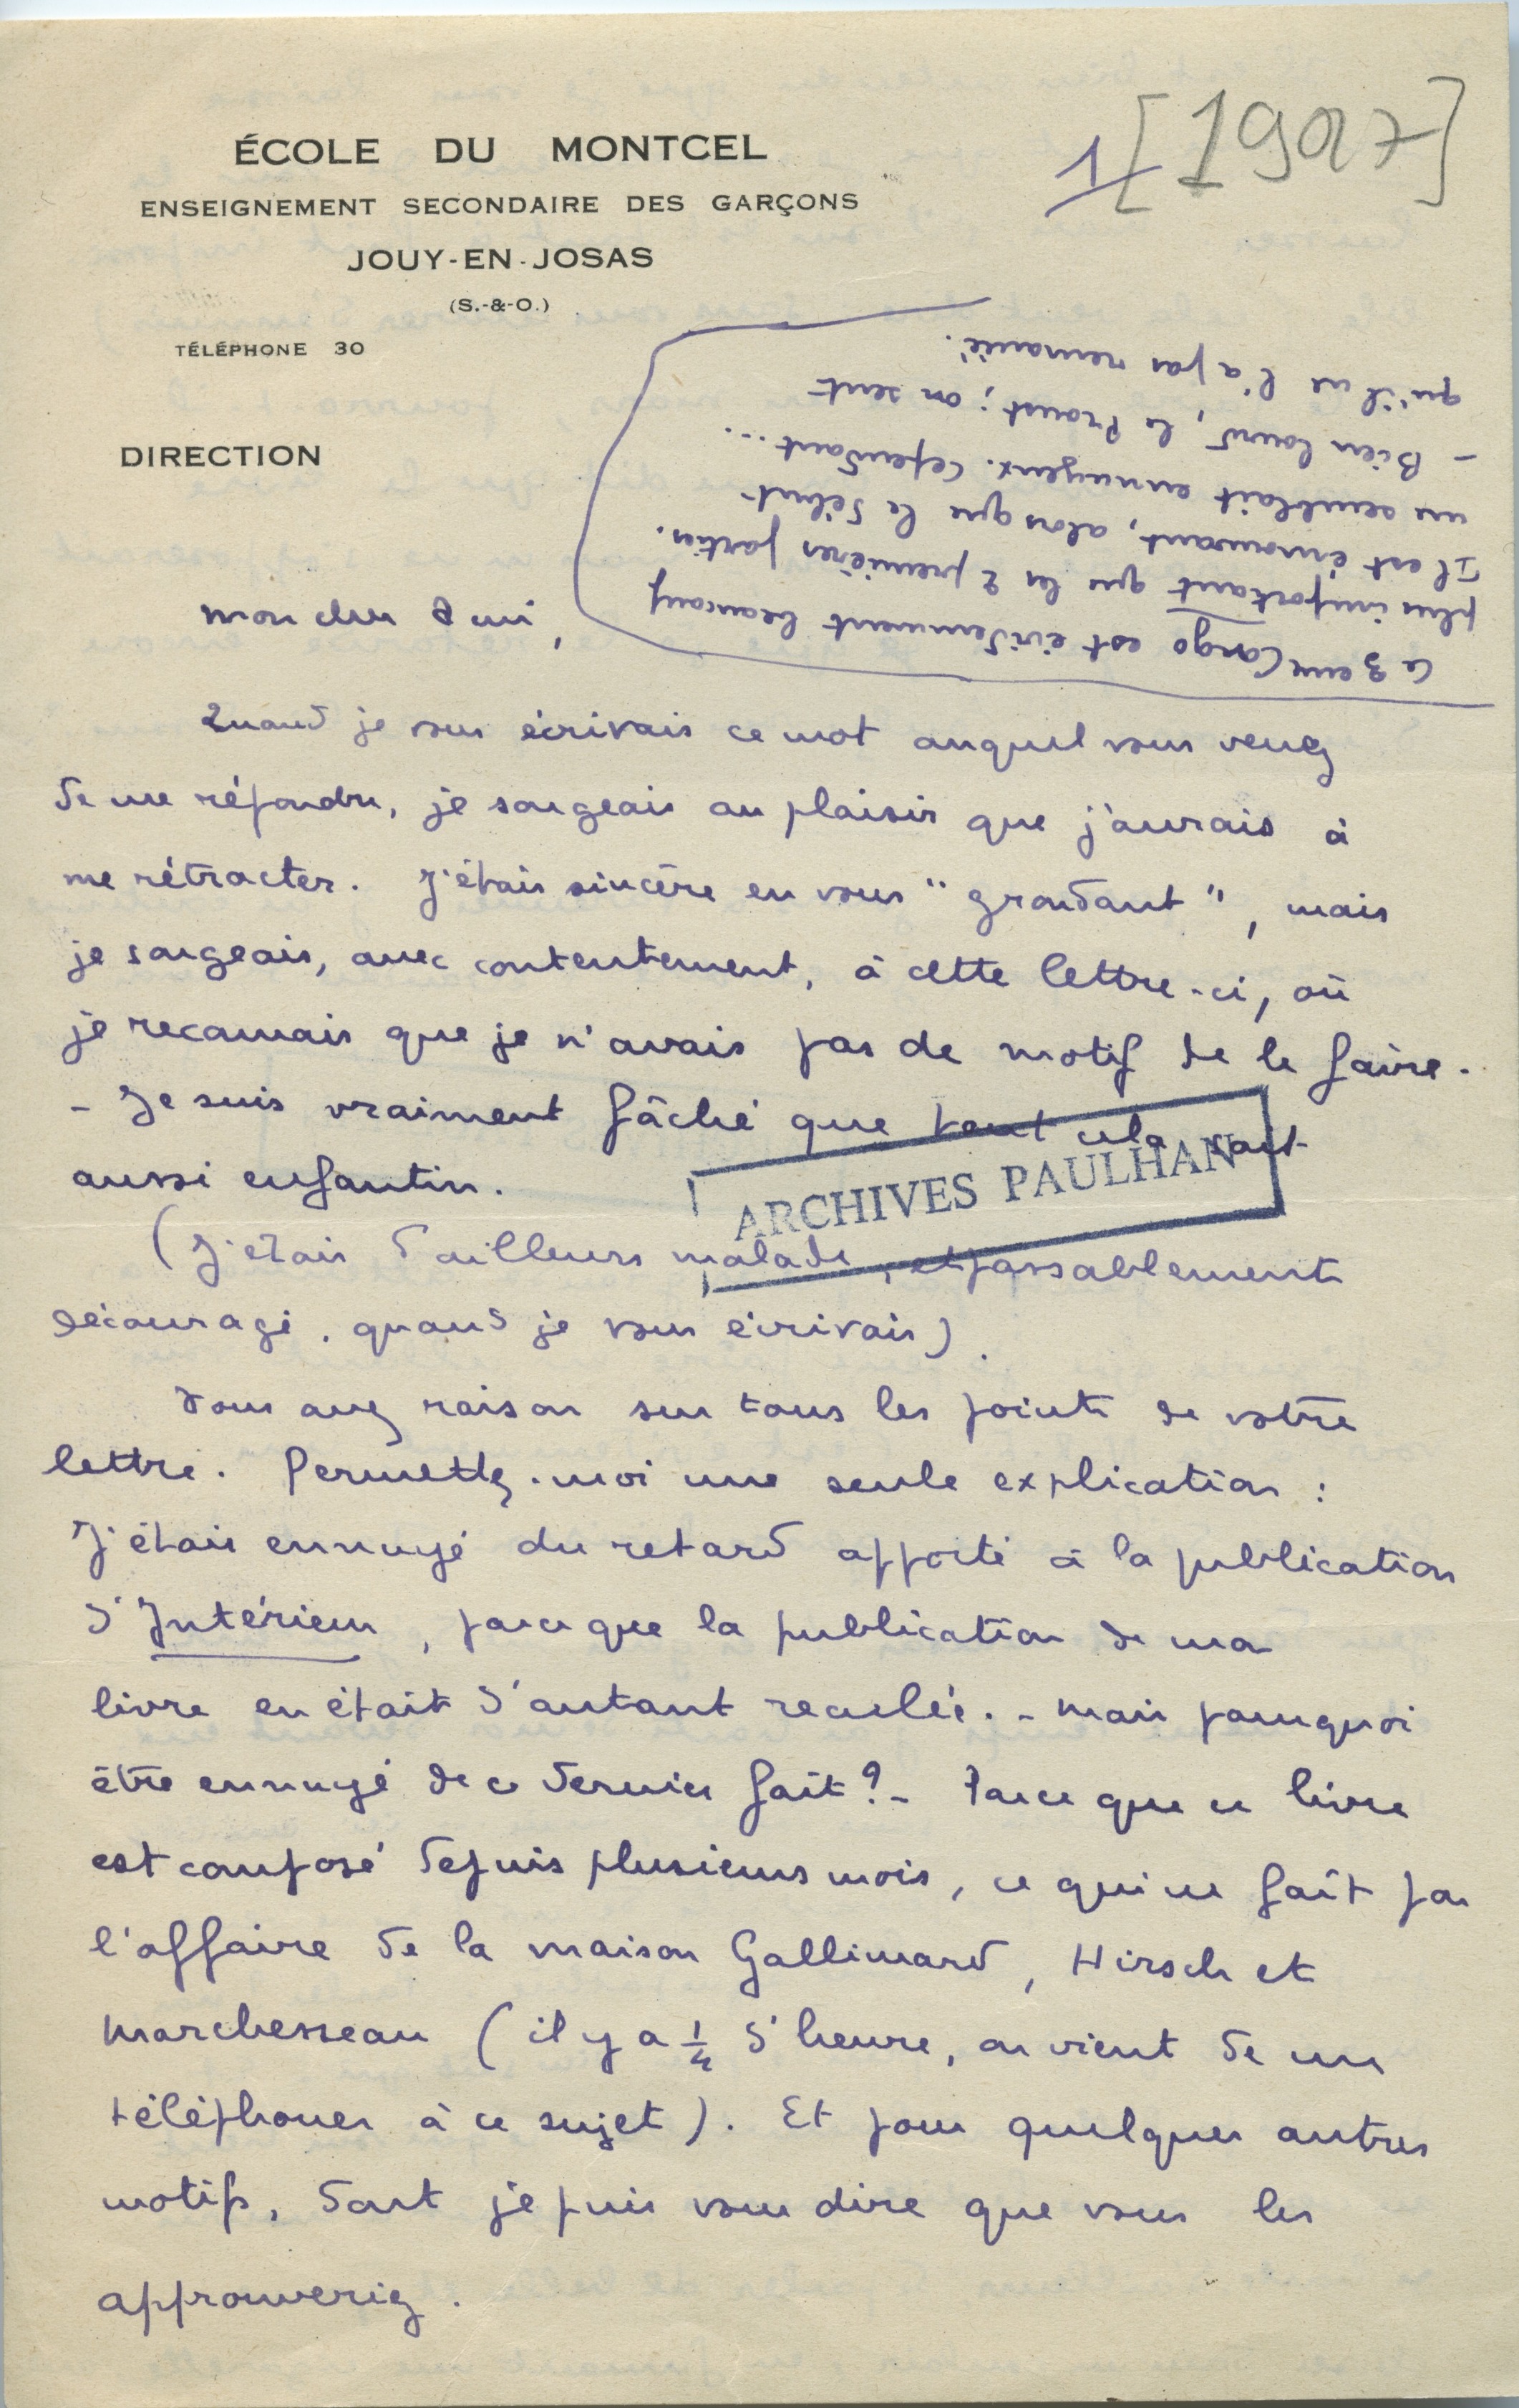 ÉCOLE DU MONTCEL
ENSEIGNEMENT SECONDAIRE DES GARÇONS
JOUY-EN-JOSAS
(S.-&-O.)
TÉLÉPHONE 30
DIRECTION
1 [1927]
Mon cher ami,
Quand je vous écrivais ce mot auquel vous venez
de me répondre, je songeais au plaisir que j'aurais à
me rétracter. J'étais sincère en vous "grondant", mais
je songeais, avec contentement, à cette lettre-ci, où
je reconnais que je n'avais pas de motif de le faire.
- Je suis vraiment fâché que tout cela soit
aussi enfantin.
ARCHIVES PAULHAN
(J'étais d'ailleurs malade, et passablement
découragé, quand je vous écrivais).
Vous avez raison sur tous les points de votre
lettre. Permettez-moi une seule explication :
J'étais ennuyé du retard apporté à la publication
d'Intérieur, parce que la publication de mon
livre en était d'autant reculée. - Mais pourquoi
être ennuyé de ce dernier fait ? - Parce que ce livre
est composé depuis plusieurs mois, ce qui ne fait pas
l'affaire de la maison Gallimard, Hirsch et
Marchesseau (il y a 1/4 d'heure, on vient de me
téléphoner à ce sujet). Et pour quelques autres
motifs, dont je puis vous dire que vous les
approuveriez.
Ce 3eme Congo est évidemment beaucoup
plus important que les 2 premières parties.
Il est émouvant, alors que le début
me semblait ennuyeux. Cependant...
- Bien lourd, le Proust ; on sent
qu'il ne l'a pas remanié.